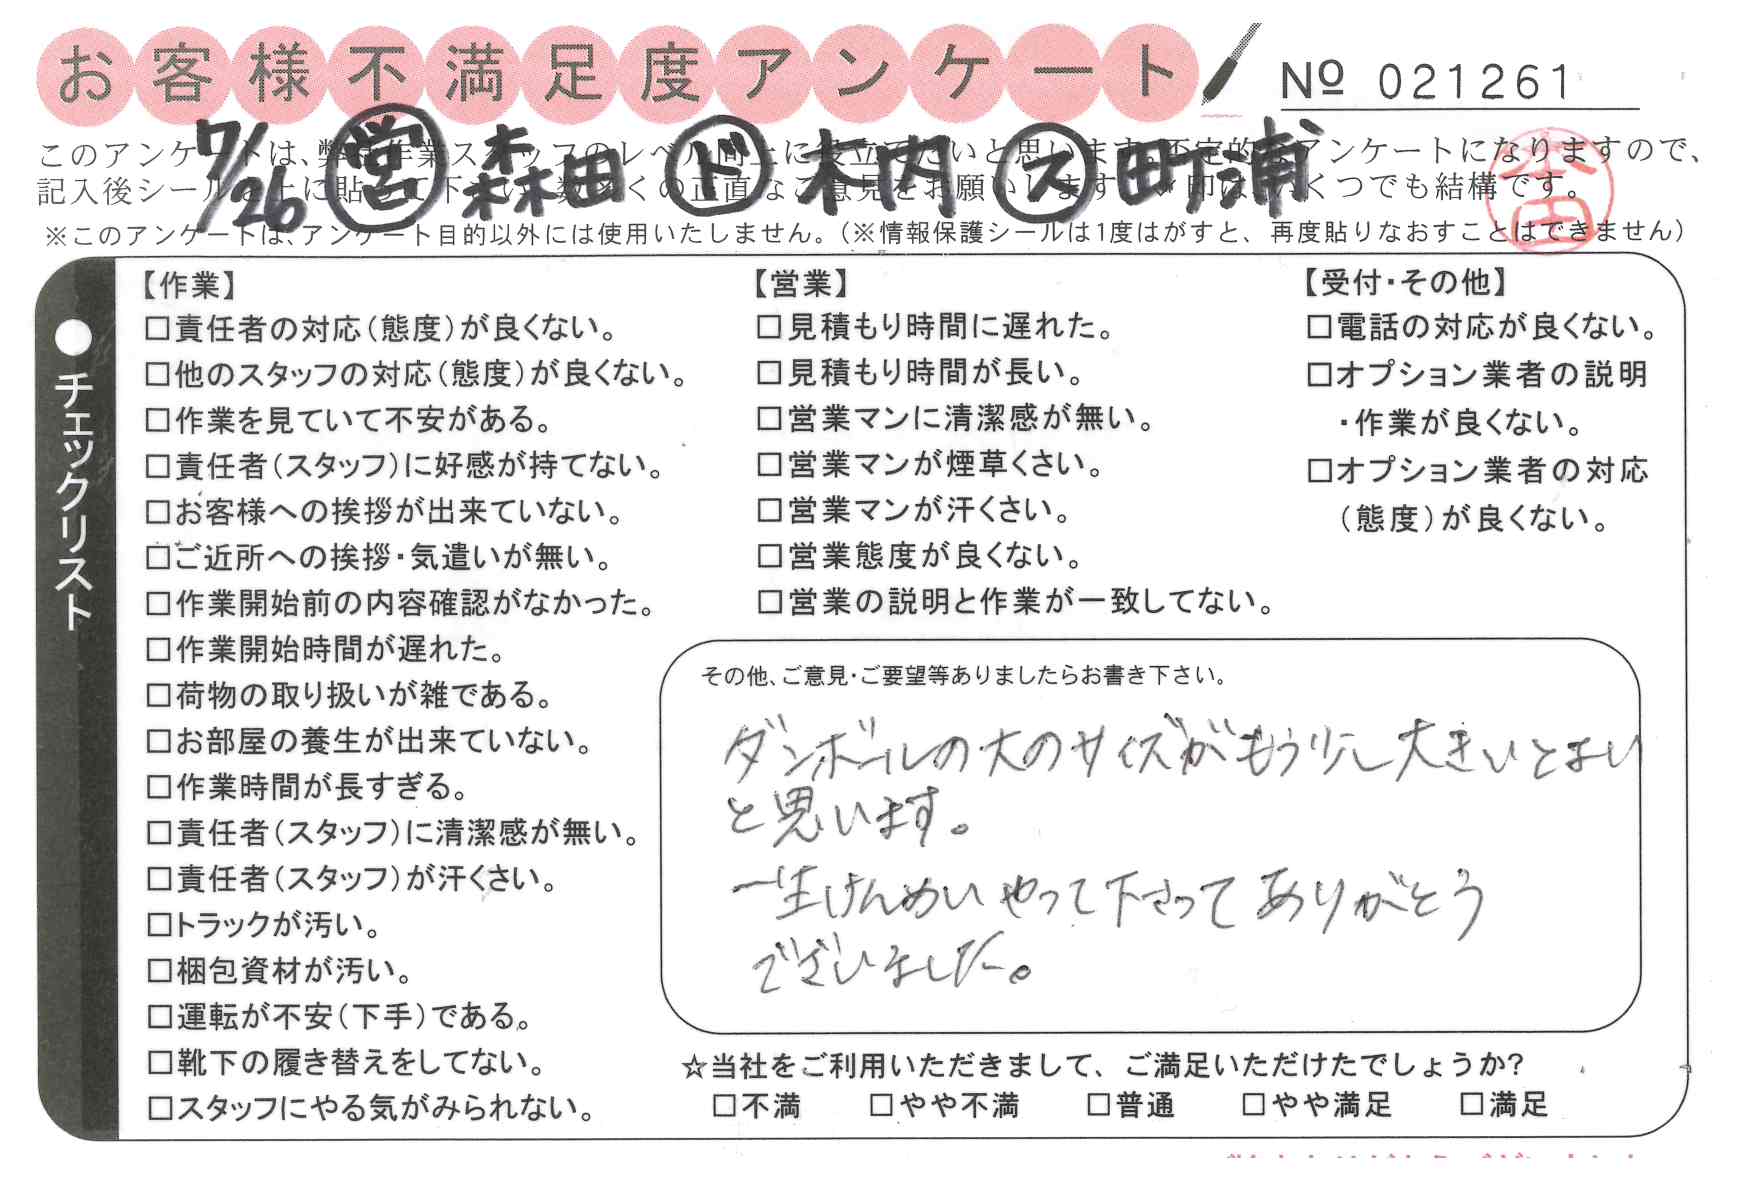 お客様不満足度アンケート
Nº 021261
7/26 営 森田 ド 木内 ス 町浦
このアンケートは、弊社作業スタッフのレベル向上に役立てたいと思います。否定的なアンケートになりますので、
記入後シールを上に貼って下さい。数多くの正直なご意見をお願いします。レ印は、いくつでも結構です。
※このアンケートは、アンケート目的以外には使用いたしません。(※情報保護シールは1度はがすと、再度貼りなおすことはできません)
●チェックリスト
【作業】
□責任者の対応(態度)が良くない。
□他のスタッフの対応(態度)が良くない。
□作業を見ていて不安がある。
□責任者(スタッフ)に好感が持てない。
□お客様への挨拶が出来ていない。
□ご近所への挨拶・気遣いが無い。
□作業開始前の内容確認がなかった。
□作業開始時間が遅れた。
□荷物の取り扱いが雑である。
□お部屋の養生が出来ていない。
□作業時間が長すぎる。
□責任者(スタッフ)に清潔感が無い。
□責任者(スタッフ)が汗くさい。
□トラックが汚い。
□梱包資材が汚い。
□運転が不安(下手)である。
□靴下の履き替えをしてない。
□スタッフにやる気がみられない。
【営業】
□見積もり時間に遅れた。
□見積もり時間が長い。
□営業マンに清潔感が無い。
□営業マンが煙草くさい。
□営業マンが汗くさい。
□営業態度が良くない。
□営業の説明と作業が一致してない。
【受付・その他】
□電話の対応が良くない。
□オプション業者の説明
・作業が良くない。
□オプション業者の対応
(態度)が良くない。
その他、ご意見・ご要望等ありましたらお書き下さい。
ダンボールの大のサイズがもう少し大きいとよい
と思います。
一生けんめいやって下さってありがとう
ございました。
☆当社をご利用いただきまして、ご満足いただけたでしょうか?
□不満 □やや不満 □普通 □やや満足 □満足